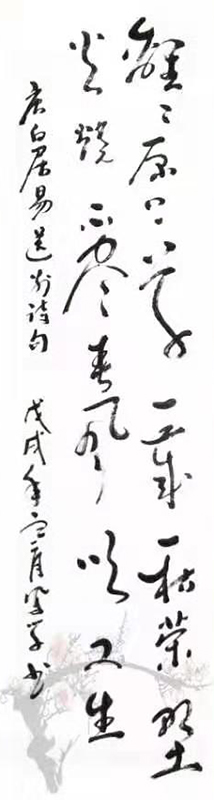 離〻原上草一歲一枯榮野
火燒不盡春風吹又生
唐白居易送别诗句 戊戌年月学书